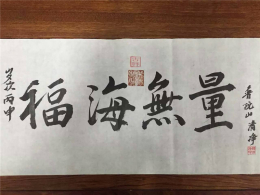 普陀山清净
福海無量
岁次丙申